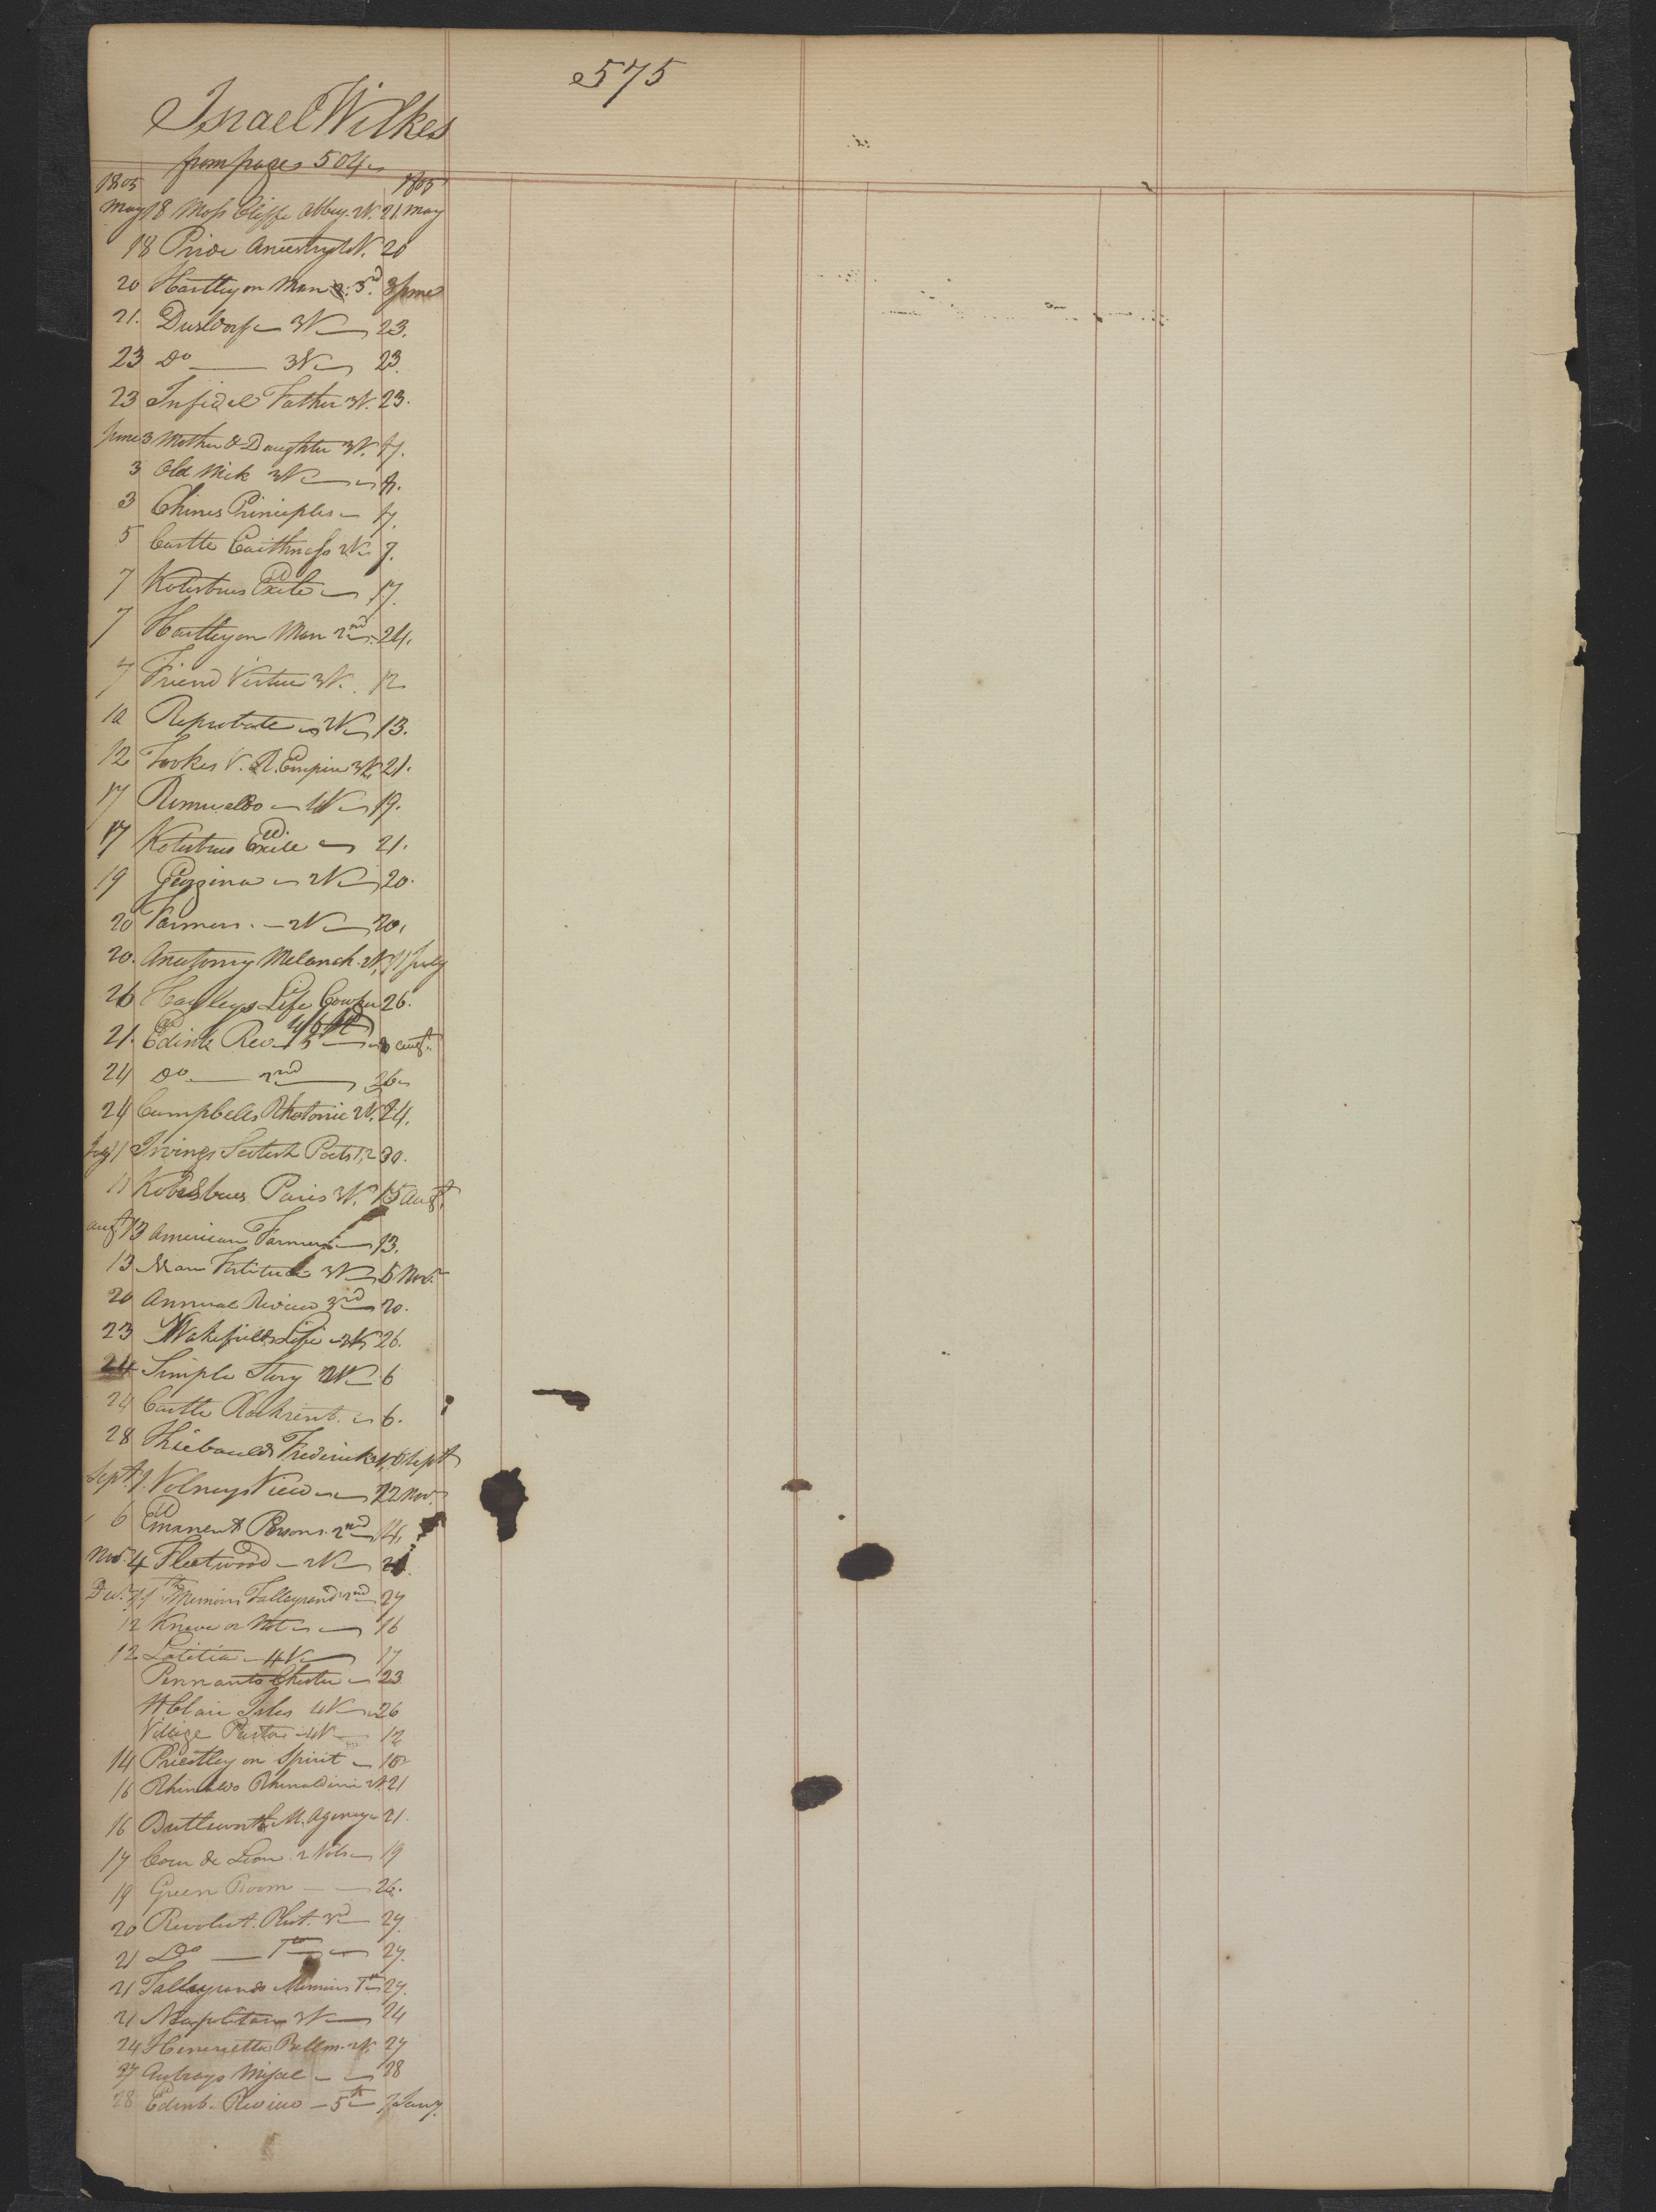 575
Israel Wilkes
from page 504
1805 1805
May 18 Moss Cliffe Abbey. 2V. 21 May
18 Pride Ancestry 4V. 20
20 Hartley on Man 3rd. 3 June
21. Dusldorf 3V 23.
23 Do 3V 23.
23 Infidel Father 3V. 23.
June 3 Mother & Daughter 3V. 7.
3 Old Nick 3V 7.
3 Chines Principles 7.
5 Castle Caithness 2V 7.
7 Kotzebues Exile 17.
7 Hartley on Man 2nd 24.
7 Friend Virtue 3V. 12
10 Reprobate 2V 13.
12 Tookes V. R. Empire 3V 21.
17 Romualdo 4V 19.
17 Kotzebues Exile 21.
19 2V 20.
20 Farmers. 2V 20.
20. Anatomy Melanch. 2V. 11 July
26 Hayleys Life Cowper 26.
21. Edinb Rev. 8 Augt.
24 Do 2nd 26
24 Campbells Rhetoric 2V. 24.
July 11 Irvings Scotish Poets 1, 2 30.
11 Kotzebues Paris 3V. 15 Augt.
Augt 13 American Farmer 13.
13 Man Fortitude 3V 5 Novr.
20 Annual Review 3rd 20.
23 Wakefields Life 2V 26.
24 Simple Story 2V 6
24 Castle Rackrent. 6.
28 Thiebaulds Frederick 2V, 6 Sept
Sept. 7. Volneys View 22 Nov.
6 Emanent Persons 2nd 14,
Nov. 4 Fleetwood 2V
Decr. 11 Memoirs Talleyrand 2nd 27
12 Knave or Not 16
12 Letitia 4V 17
Pennants Chester 23
St Clair Isles 4V 26
Village Pastor 4V 12
14 Priestley on Spirit 16
16 Rhinaldo Rhinaldini 2V. 21
16 Butterworth M. Agency 21.
17 Coeur de Lion. 2 Vols 19
19 Green Room 26.
20 Revolut. Plut. 3rd 27.
21 Do 1st 27.
21 Talleyrands Memoirs 1st 27.
21 Neapolitan 3V 24
24 Henrietta Bellm. 2V. 27
27 28
28 Edinb. Review 5th 7 Jany.